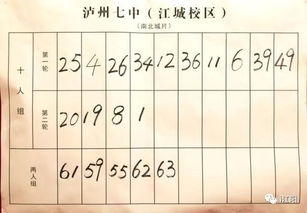 泸州七中（江城校区）
（南北城片）
十人组
第一轮 25 4 26 34 12 36 11 6 39 49
第二轮 20 19 8 1
两人组 61 59 55 62 63